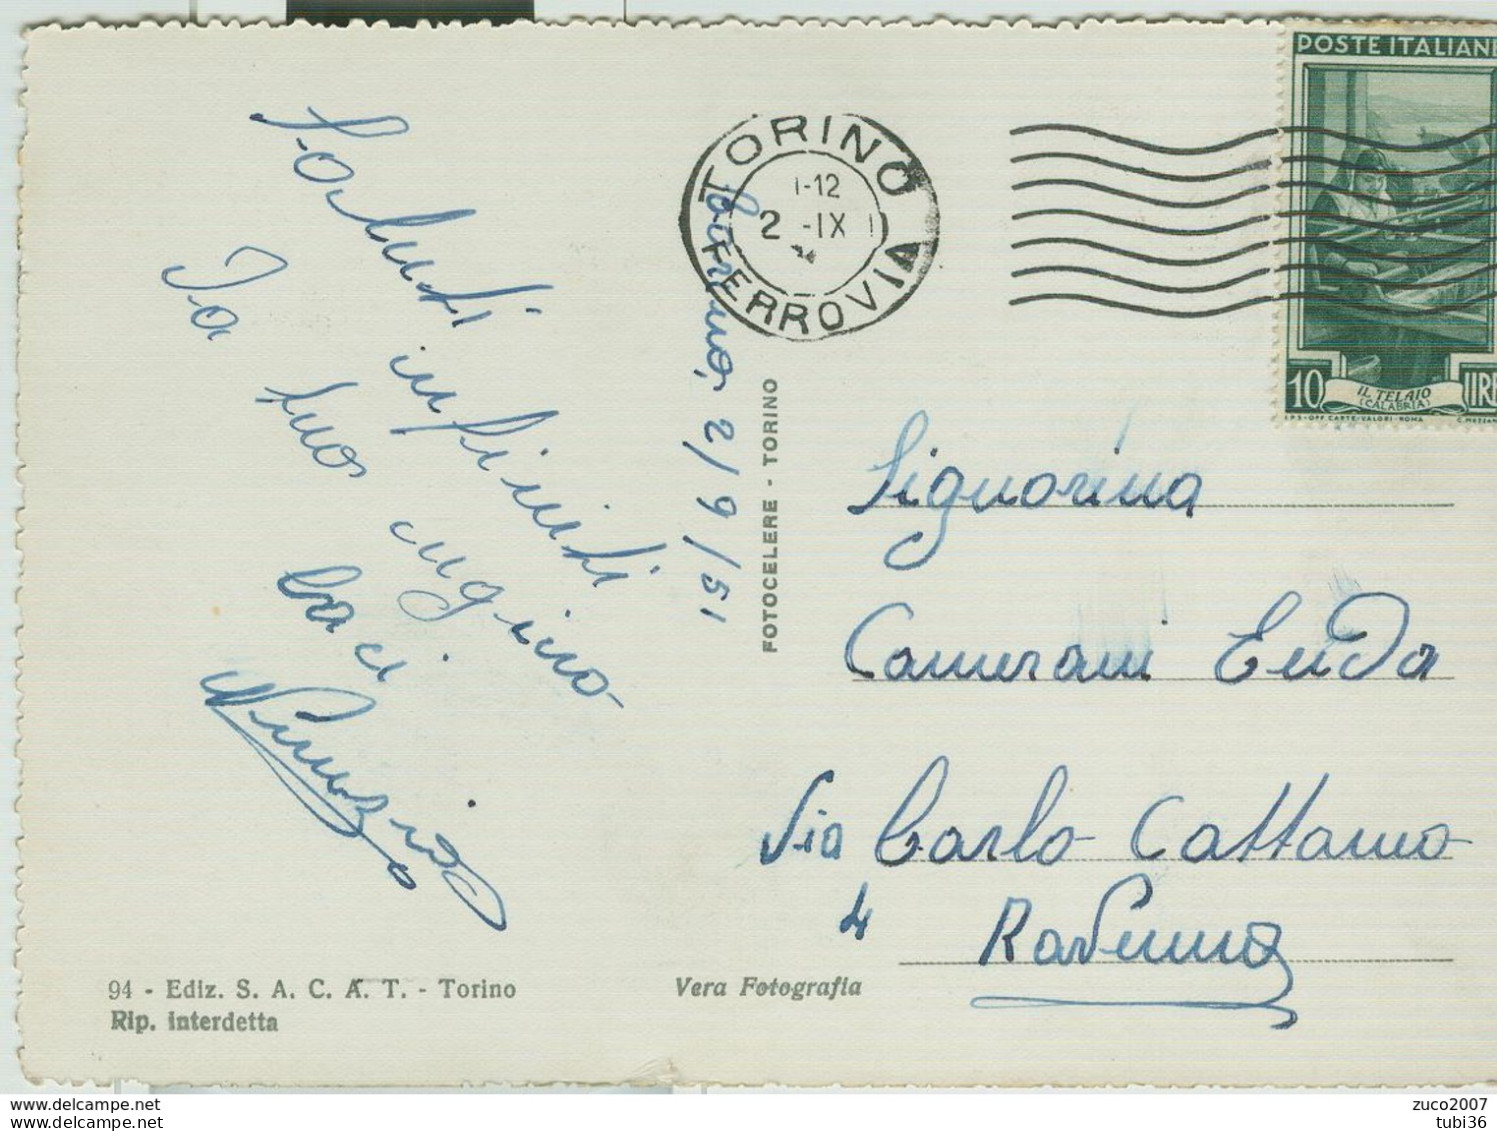 Saluti infiniti
Da tuo cugino
baci
Nunzio
Torino, 2/9/51
94 - Ediz. S. A. C. A. T. - Torino
Rip. interdetta
Vera Fotografia
FOTOCELERE - TORINO
TORINO
1-12
2 -IX
FERROVIA
POSTE ITALIANE
10 LIRE
IL TELAIO
(CALABRIA)
I.P.S-OFF. CARTE-VALORI-ROMA
Signorina
Camerani Enda
Via Carlo Cattaneo
4 Ravenna
www.delcampe.net
www.delcampe.net
zuco2007
tubi36